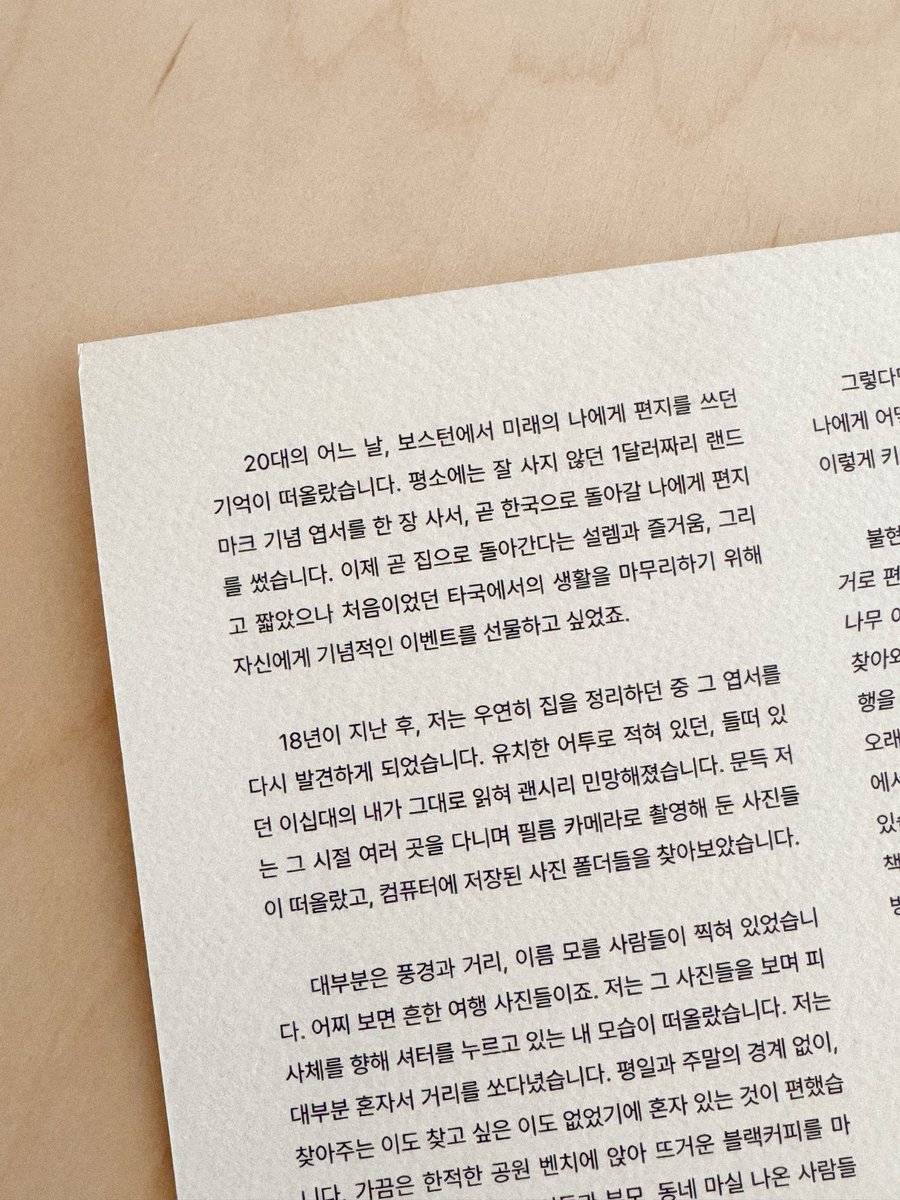 20대의 어느 날, 보스턴에서 미래의 나에게 편지를 쓰던
기억이 떠올랐습니다. 평소에는 잘 사지 않던 1달러짜리 랜드
마크 기념 엽서를 한 장 사서, 곧 한국으로 돌아갈 나에게 편지
를 썼습니다. 이제 곧 집으로 돌아간다는 설렘과 즐거움, 그리
고 짧았으나 처음이었던 타국에서의 생활을 마무리하기 위해
자신에게 기념적인 이벤트를 선물하고 싶었죠.
18년이 지난 후, 저는 우연히 집을 정리하던 중 그 엽서를
다시 발견하게 되었습니다. 유치한 어투로 적혀 있던, 들떠 있
던 이십대의 내가 그대로 읽혀 괜시리 민망해졌습니다. 문득 저
는 그 시절 여러 곳을 다니며 필름 카메라로 촬영해 둔 사진들
이 떠올랐고, 컴퓨터에 저장된 사진 폴더들을 찾아보았습니다.
대부분은 풍경과 거리, 이름 모를 사람들이 찍혀 있었습니
다. 어찌 보면 흔한 여행 사진들이죠. 저는 그 사진들을 보며 피
사체를 향해 셔터를 누르고 있는 내 모습이 떠올랐습니다. 저는
대부분 혼자서 거리를 쏘다녔습니다. 평일과 주말의 경계 없이,
찾아주는 이도 찾고 싶은 이도 없었기에 혼자 있는 것이 편했습
니다. 가끔은 한적한 공원 벤치에 앉아 뜨거운 블랙커피를 마
부모, 동네 마실 나온 사람들
그렇다면
나에게 어떤
이렇게 키
불현
거로 편
나무 이
찾아오
행을
오래
에서
있습
책